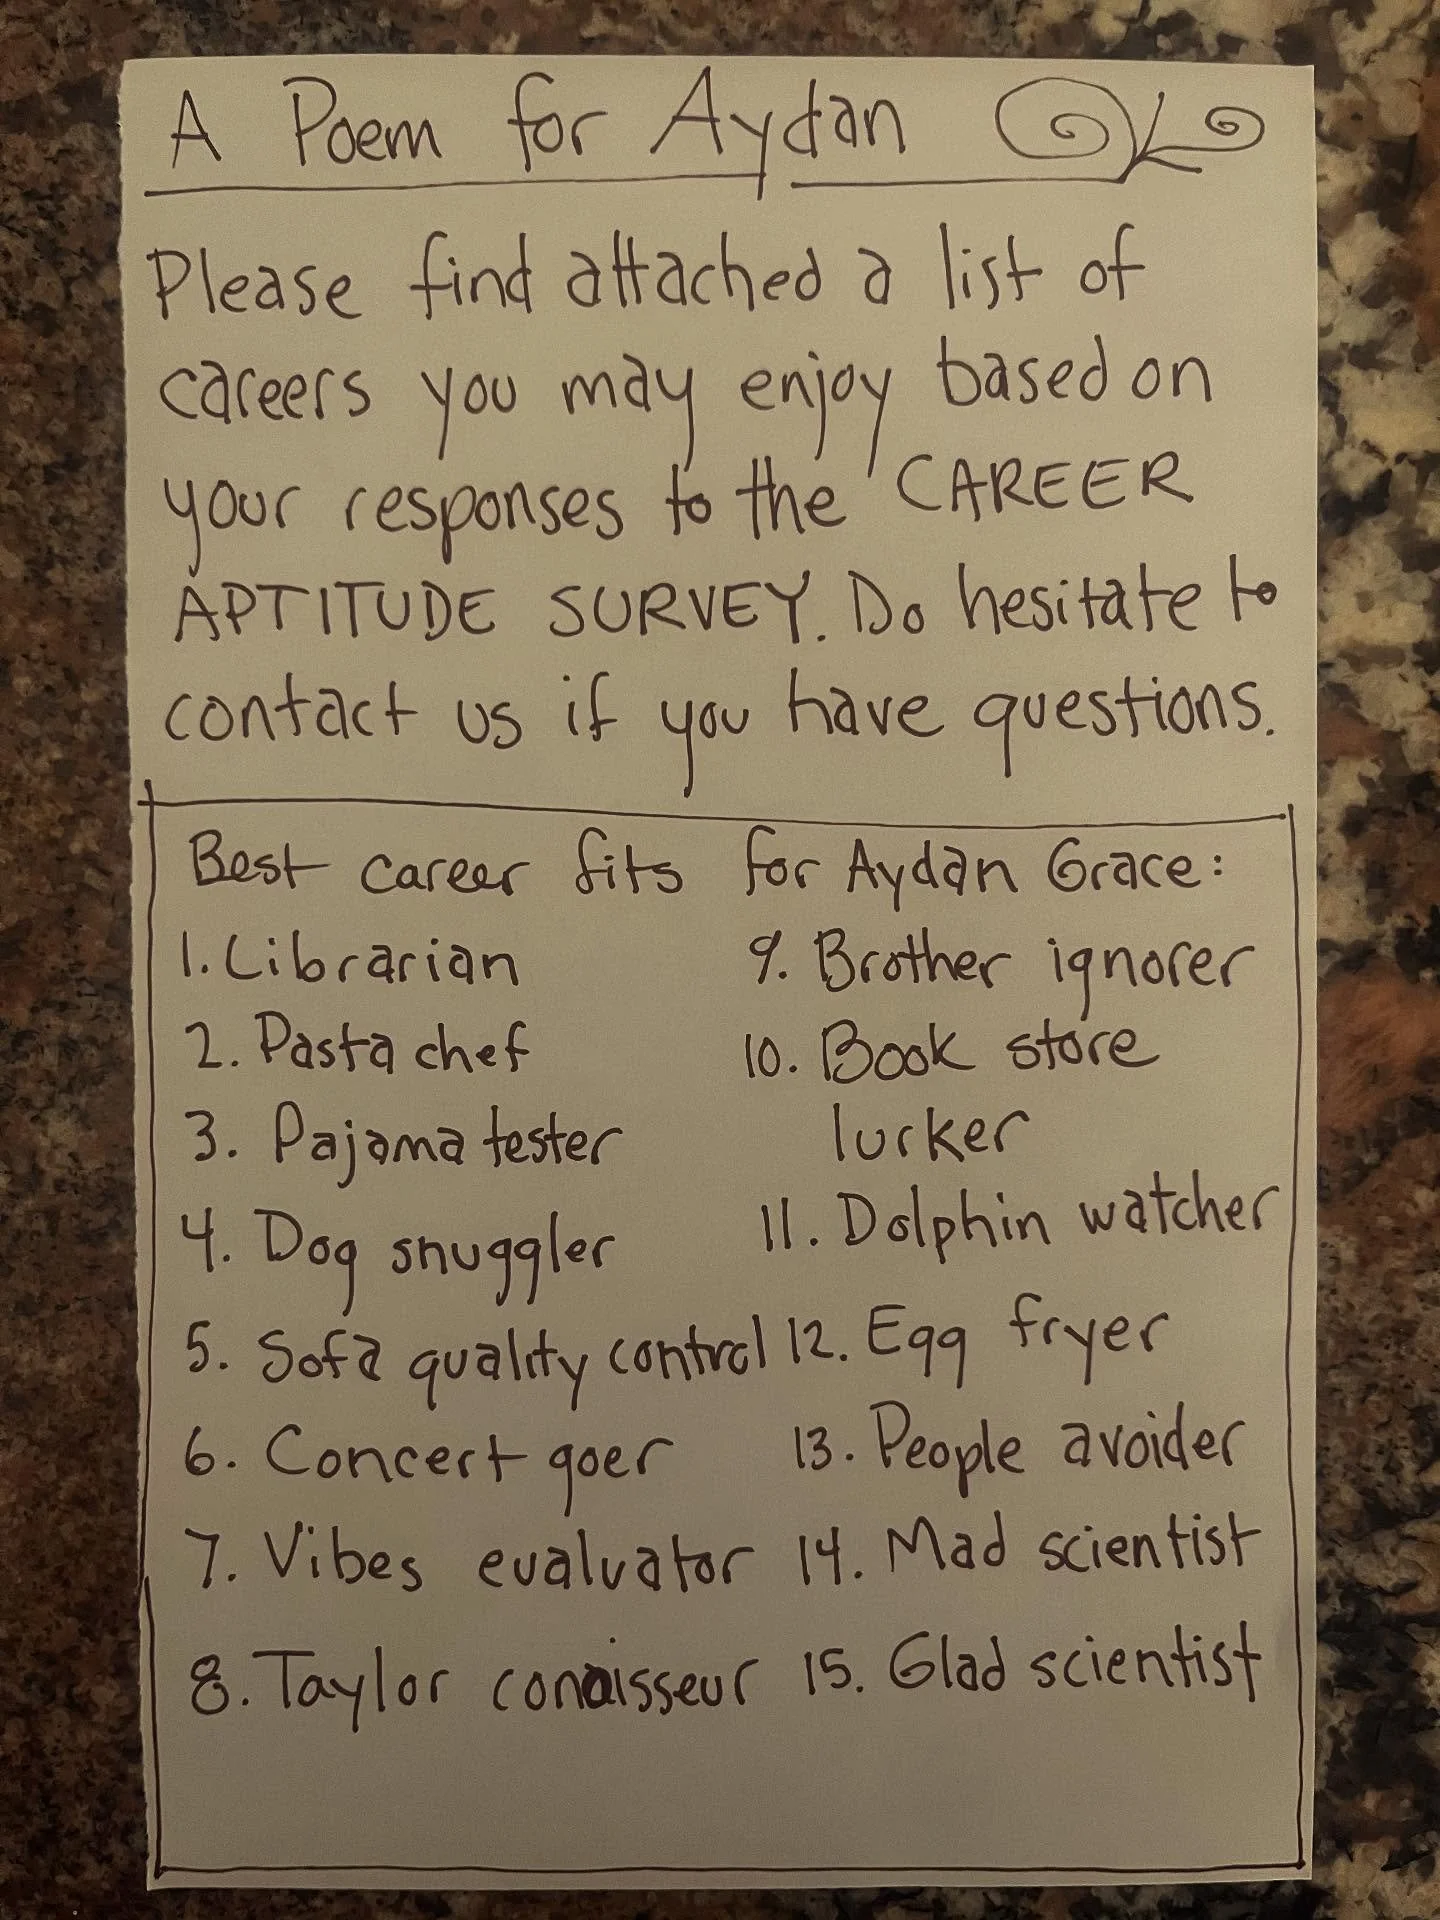 A Poem for Aydan
Please find attached a list of
careers you may enjoy based on
your responses to the CAREER
APTITUDE SURVEY. Do hesitate to
contact us if you have questions.
Best career fits for Aydan Grace:
1. Librarian
2. Pasta chef
3. Pajama tester
4. Dog snuggler
5. Sofa quality control
6. Concert goer
7. Vibes evaluator
8. Taylor conaisseur
9. Brother ignorer
10. Book store
lurker
11. Dolphin watcher
12. Egg fryer
13. People avoider
14. Mad scientist
15. Glad scientist